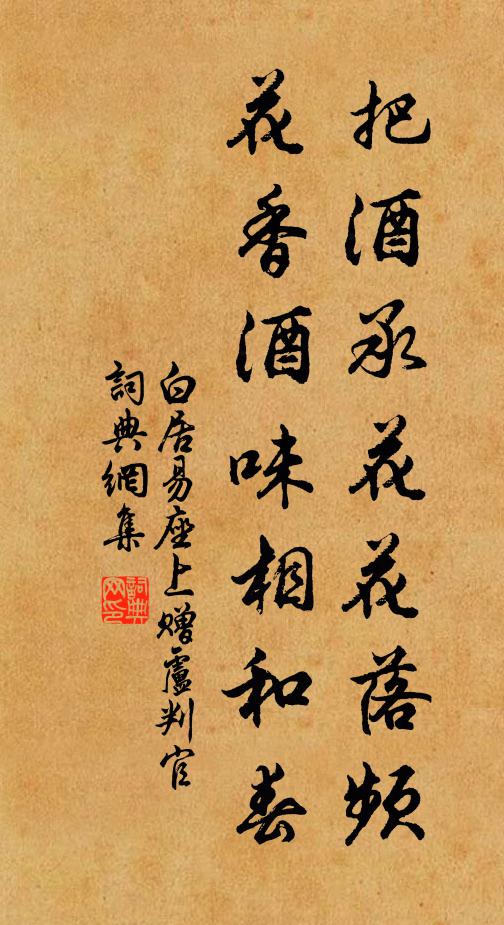 把酒承花花落頻
花香酒味相和春
白居易座上贈盧判官
詞典網集
詞典
网印